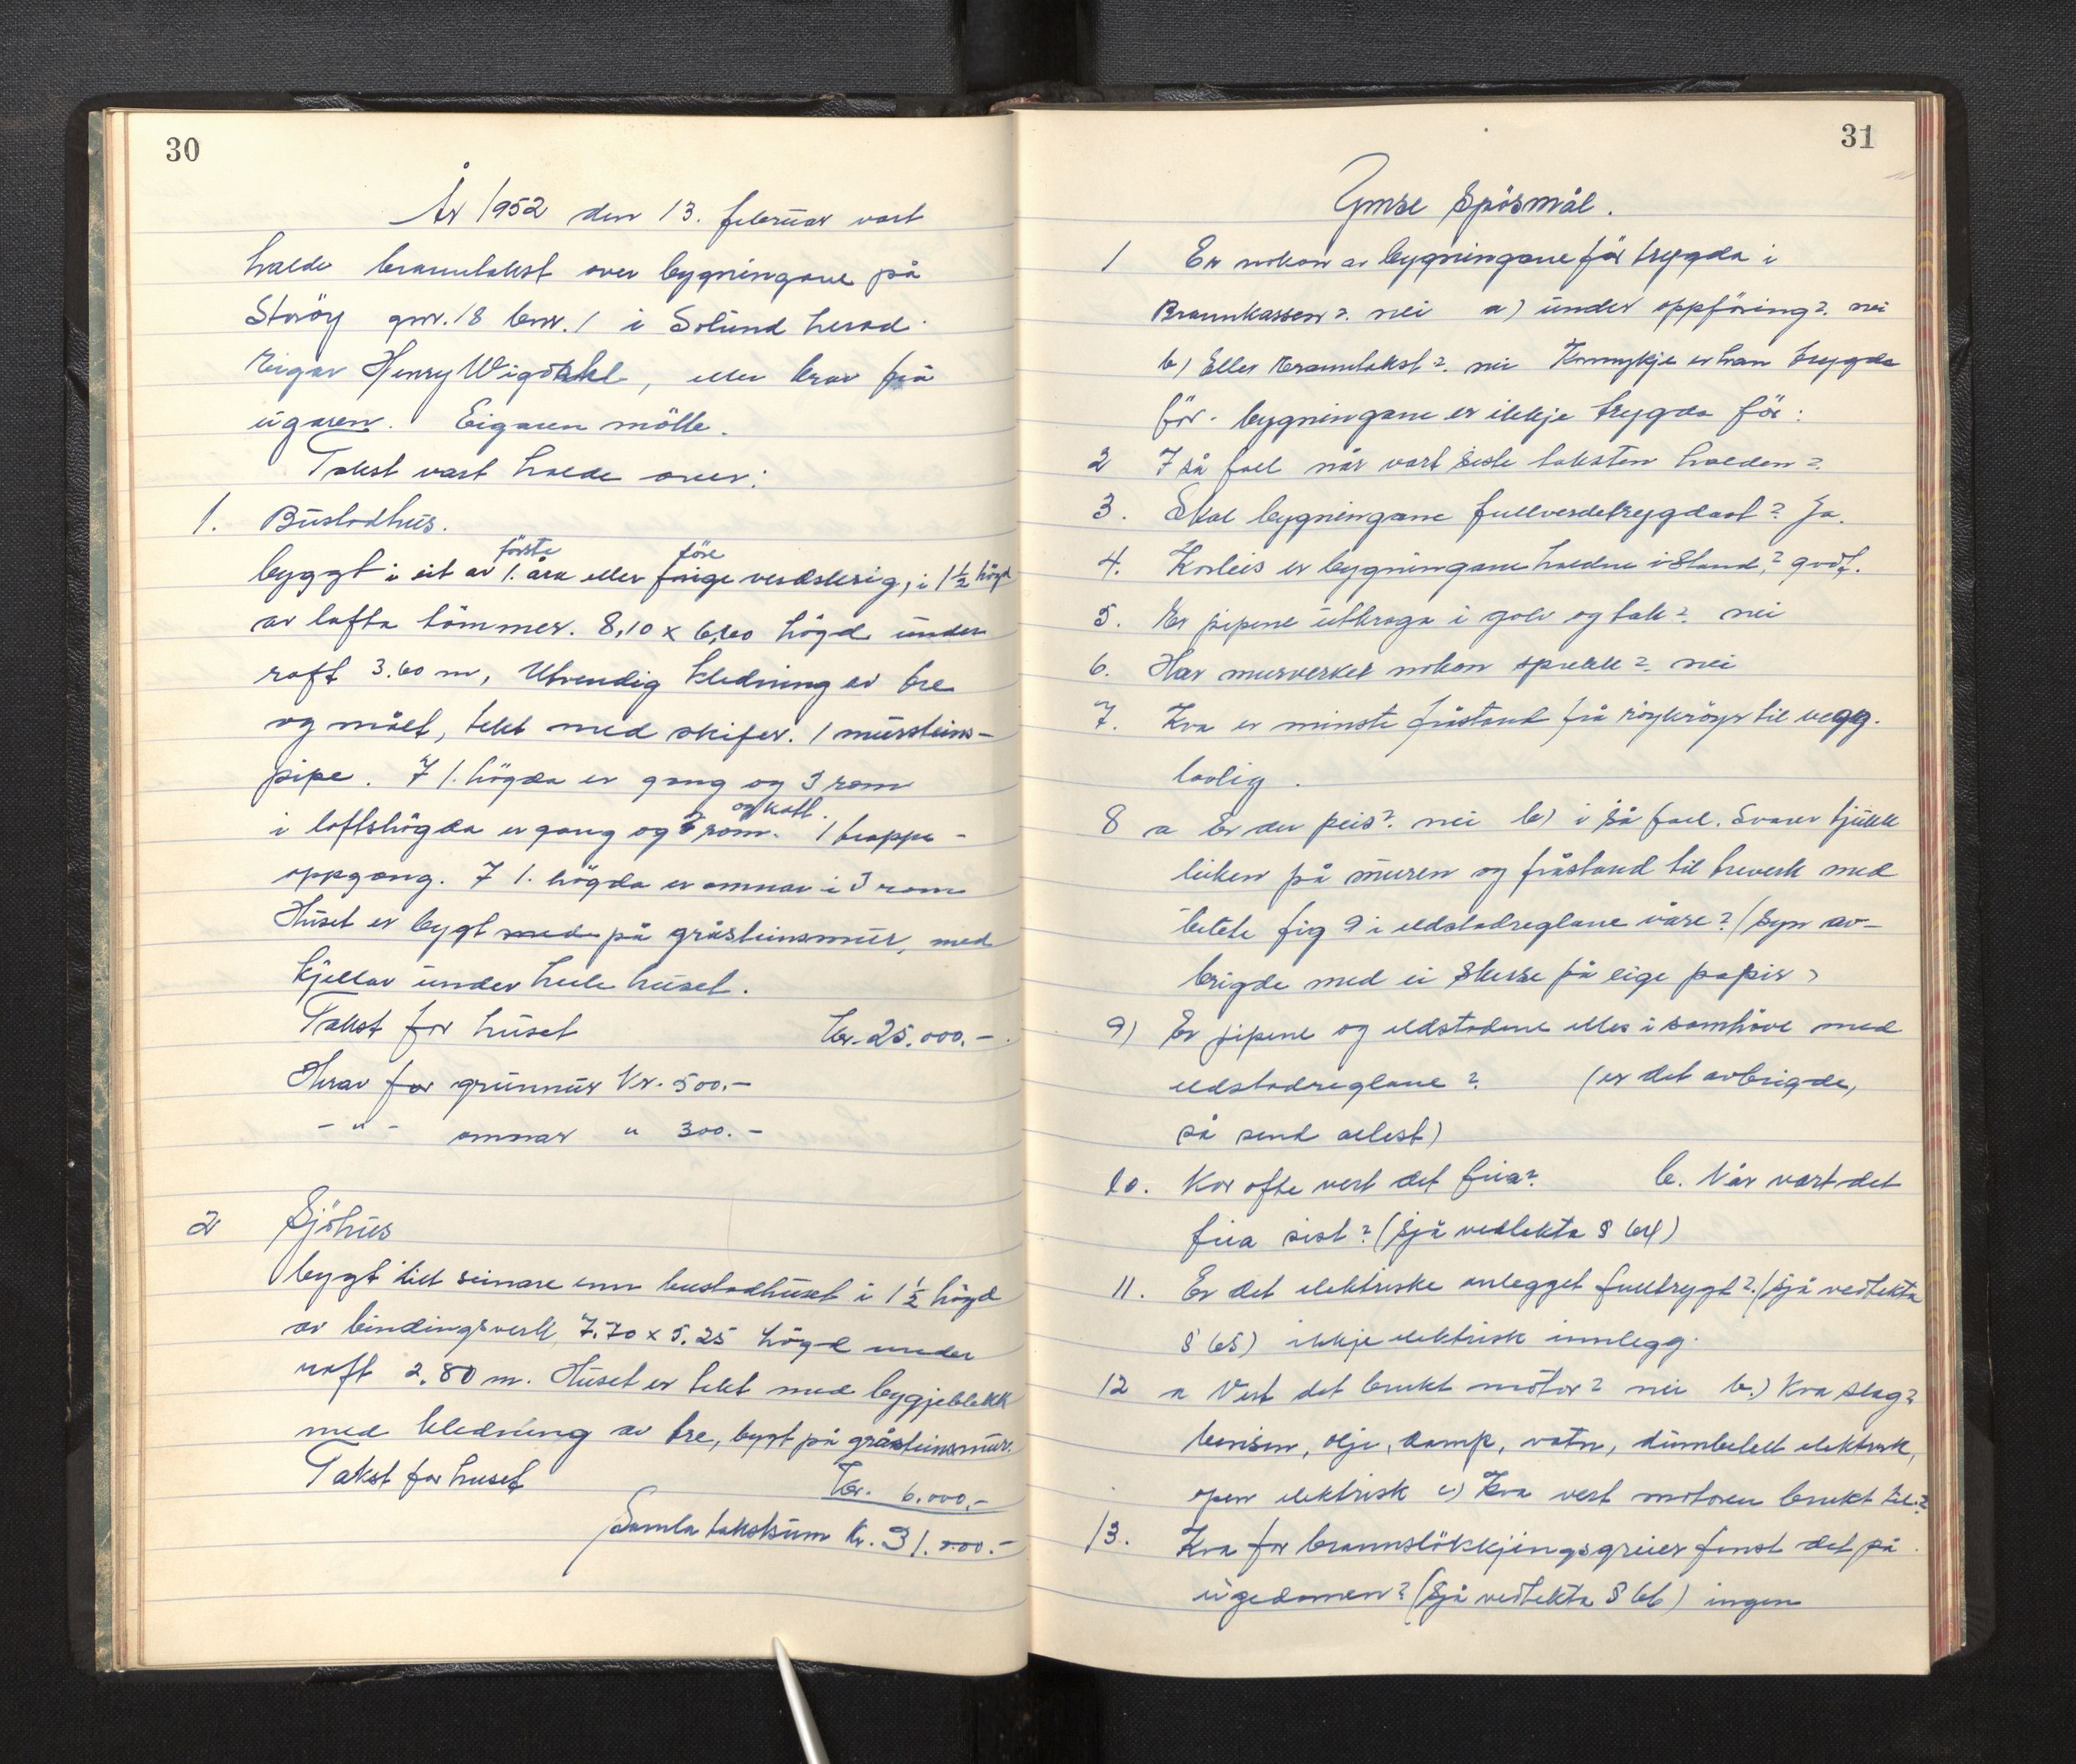 30
År 1952 den 13. februar vart
halde branntakst over bygningane på
Storöy gnr. 18 bnr. 1 i Solund herad.
Eigar Henry Wigdahl, etter krav frå
eigaren. Eigaren mötte.
Takst vart halde over:
1. Bustadhus.
förste före
byggt i eit av 1. åra etter forige verdskrig, i 1 1/2 högd
av lafta tömmer. 8,10 x 6,60 högd under
raft 3.60 m, Utvendig kledning av tre
og målt, tekt med skifer. 1 mursteins-
pipe. I 1. högda er gang og 3 rom
og kott.
i loftshögda er gang og rom. 1 trappe-
oppgang. I 1. högda er omnar i 3 rom
Huset er bygt med på gråsteinsmur, med
kjellar under heile huset.
Takst for huset kr. 25.000.-
Herav for grunnur kr. 500.-
- " - omnar " 300.-
2 Sjöhus
bygt litt seinare enn bustadhuset i 1 1/2 högd
av bindingsverk 7.70 x 5.25 högd under
raft 2.80 m. Huset er tekt med bygjeblekk
med kledning av tre, bygt på gråsteinsmur.
Takst for huset kr. 6.000.-
Samla takstsum kr. 31.000.-
31
Ymse Spösmål.
1 Er nokon av bygningane för trygda i
Brannkassen? nei a) under oppföring? nei
b) Eller branntakst? nei Kormykje er han trygda
för. bygningane er ikkje trygda för:
2 I så fall når vart siste taksten halden?
3. Skal bygningane fullverdetrygdast? Ja.
4. Korleis er bygningane haldne i Stand,? godt.
5. Er pipene utkraga i golv og tak? nei
6. Har murverket nokon sprekk? nei
7. Kva er minste fråstand frå röykröyr til vegg.
lovlig.
8 a Er der peis? nei b) i så fall. Svarer tjukk
leiken på muren og fråstand til treverk med
betete fig 9 i eldstadreglane våre? (Syn av-
brigde med ei skisse på eige papir)
9) Er pipene og eldstadene elles i samhöve med
eldstadreglane? (er det avbrigde,
så send attest)
10. Kor ofte vert det feia? b. Når vart det
feia sist? (Sjå vedtekta § 64)
11. Er det elektriske anlegget fulltrygt? (sjå vedtekta
§ 65) ikkje elektrisk innlegg.
12 a Vert det brukt motor? nei b.) Kva slag?
bensin, olje, damp, vatn, elektrisk,
open elektrisk c) Kva vert motoren brukt til?
13. Kva for brannslökkjingsgreier finst det på
eigedomen? (Sjå vedtekta § 66) ingen